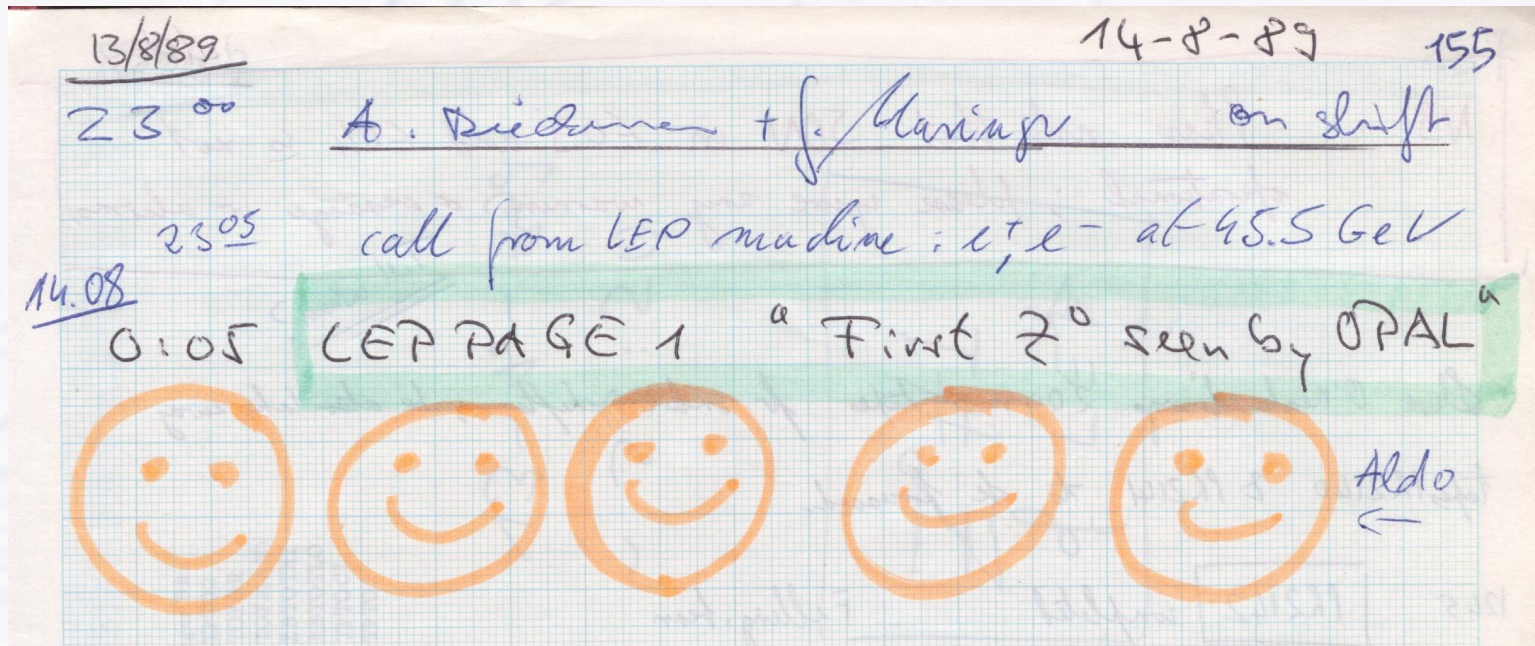 13/8/89 14-8-89 155
23 00 A. + J. on shift
23 05 call from LEP machine : e+, e- at 45.5 GeV
14.08
0:05 LEP PAGE 1 "First Z⁰ seen by OPAL"
Aldo
←